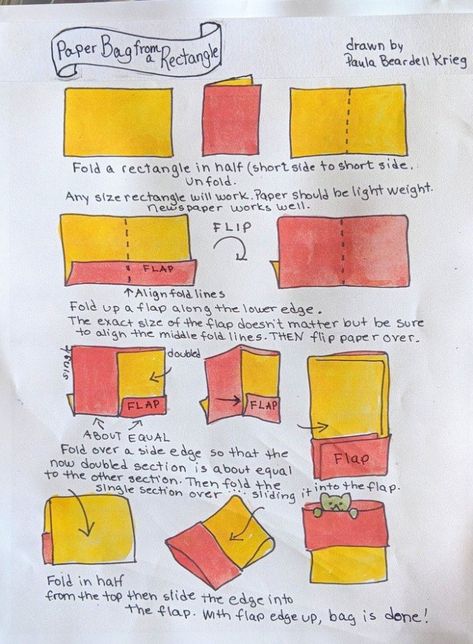 Paper Bag from
a Rectangle
drawn by
Paula Beardell Krieg
Fold a rectangle in half (short side to short side.
Unfold.
Any size rectangle will work. Paper should be light weight.
newspaper works well.
FLIP
FLAP
↑Align fold lines
Fold up a flap along the lower edge.
The exact size of the flap doesn't matter but be sure
to align the middle fold lines. THEN flip paper over.
single
doubled
FLAP
FLAP
ABOUT EQUAL
Flap
Fold over a side edge so that the
now doubled section is about equal
to the other section. Then fold the
single section over .... sliding it into the flap.
Fold in half
from the top then slide the edge into
the flap. With flap edge up, bag is done!